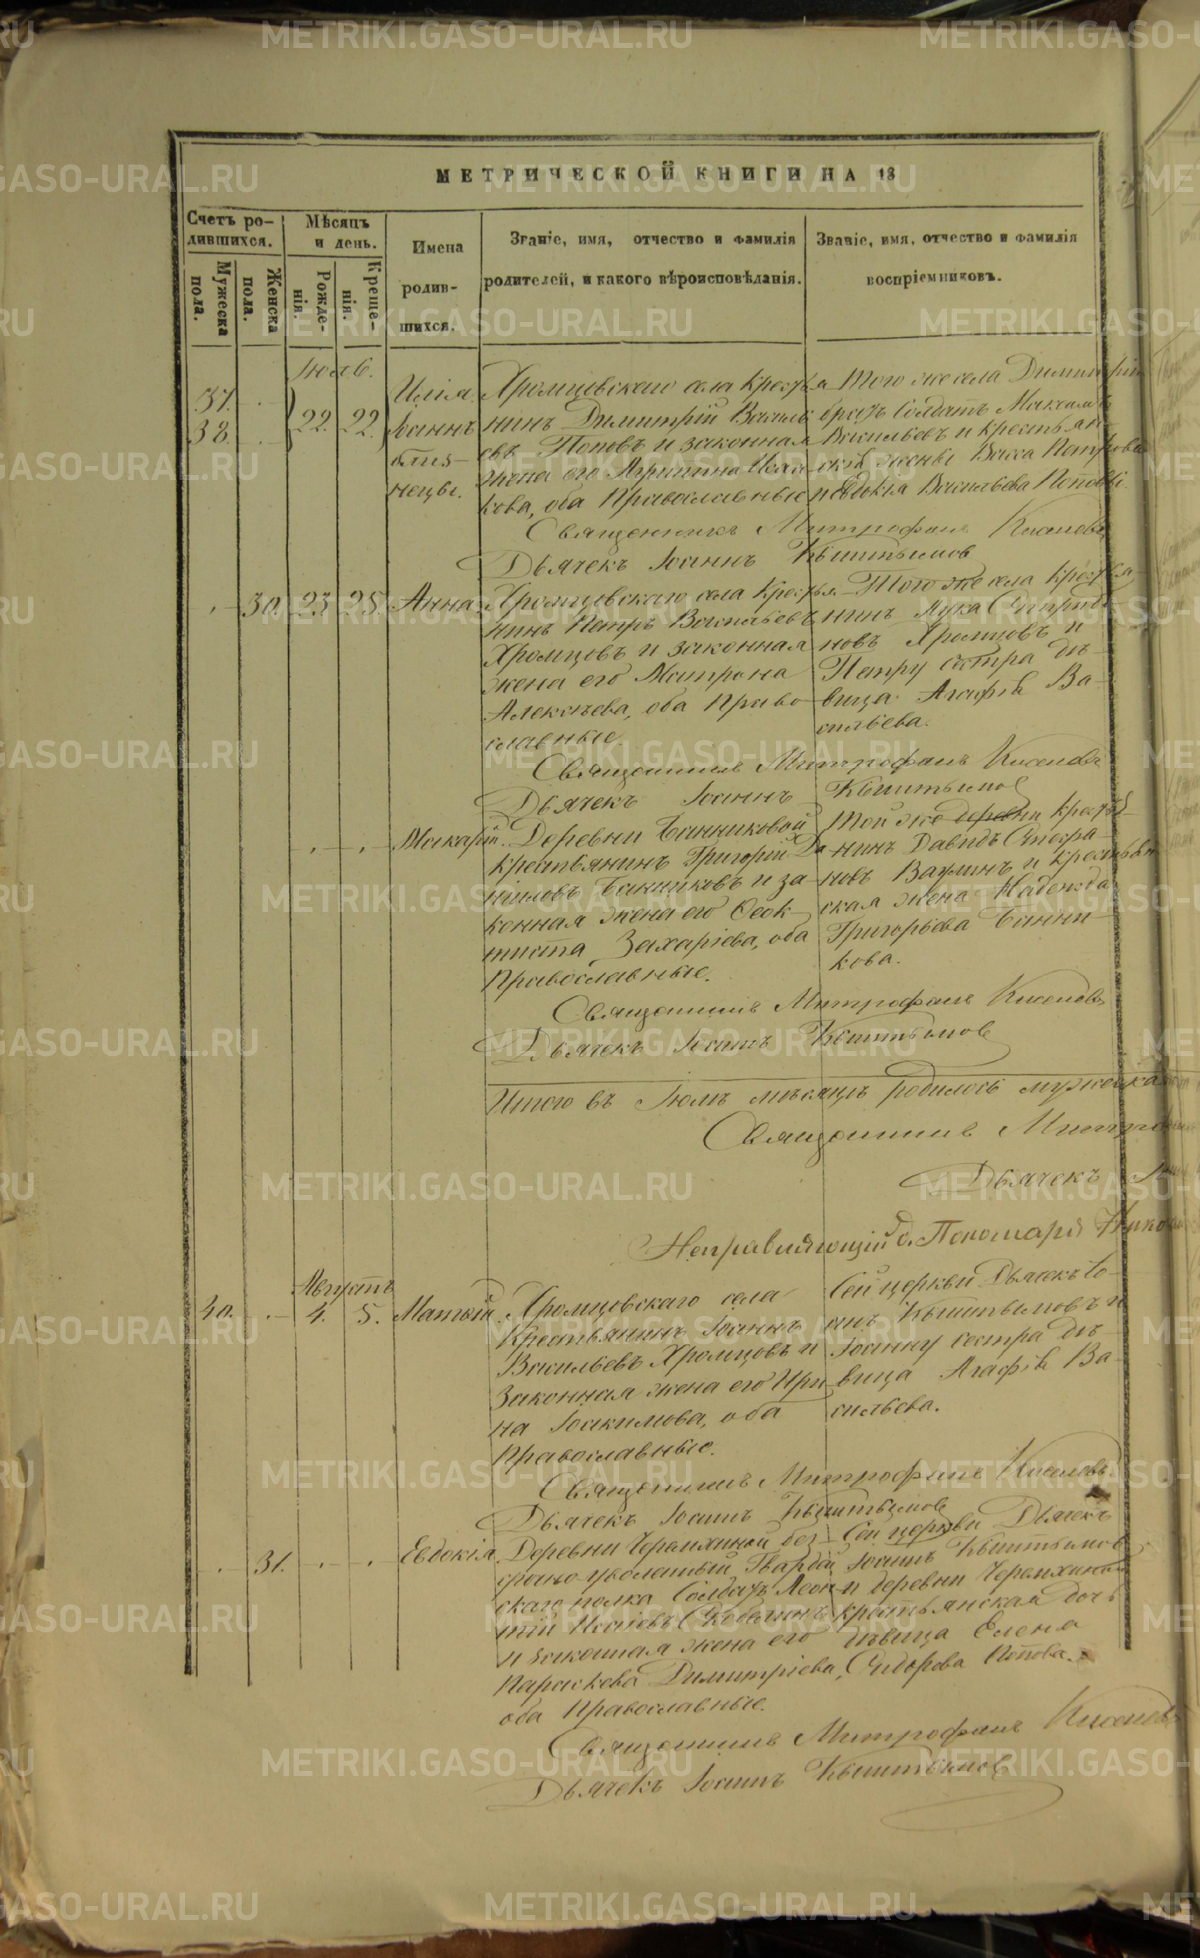 МЕТРИЧЕСКОЙ КНИГИ НА 18
Счетъ родившихся.
Мужеска пола.
Женска пола.
Мѣсяцъ и день.
Рожденія.
Крещенія.
Имена родившихся.
Званіе, имя, отчество и фамилія родителей, и какого вѣроисповѣданія.
Званіе, имя, отчество и фамилія воспріемниковъ.
Іюль.
37. 38. 22. 22.
Илія Іоаннъ близнецы.
Хромцовскаго села крестья-
нинъ Димитрій Василь-
евъ Поповъ и законная
жена его Агрипина Исаа-
кова, оба Православные
Того же села Димитрій
братъ Солдатъ Максимъ
Васильевъ и крестьян-
скія жены Васса Петрова
и Евдокія Васильева Поповы
Священникъ Митрофанъ Киселевъ
Дьячекъ Іоаннъ Кыштымов
30. 23. 25. Анна.
Хромцовскаго села крестья-
нинъ Петръ Васильевъ
Хромцовъ и законная
жена его Матрона
Алексѣева, оба Право-
славные.
Того же села крестья-
нинъ Лука Спиридо-
новъ Хромцовъ и
Петру сестра дѣ-
вица Агафія Ва-
сильева.
Священникъ Митрофанъ Киселевъ
Дьячекъ Іоаннъ Кыштымов
Макарій.
Деревни Банниковой
крестьянинъ Григорій Да-
ниловъ Банниковъ и за-
конная жена его Феок-
тиста Захаріева, оба
Православные.
Той же деревни крестья-
нинъ Давидъ Стефа-
новъ и крестьян-
ская жена Надежда
Григорьева Банни-
кова.
Священникъ Митрофанъ Киселевъ
Дьячекъ Іоаннъ Кыштымов
Итого въ Іюлѣ мѣсяцѣ родилось мужеска
Священникъ Митроф
Дьячекъ
Исправляющій д. Пономаря Никола
Августъ
40. 4. 5. Матѳій.
Хромцовскаго села
Крестьянинъ Іоаннъ
Васильевъ Хромцовъ и
Законная жена его Ири-
на Іоакимова, оба
Православные.
Сей церкви Дьячекъ Іо-
анъ Кыштымовъ и
Іоанну сестра дѣ-
вица Агафія Ва-
сильева.
Священникъ Митрофанъ Киселевъ
Дьячекъ Іоаннъ Кыштымов
31. Евдокія.
Деревни Черемхиной без-
срочно уволенный Гвардей-
скаго полка Солдатъ Леон-
тій
и законная жена его
Параскева Димитріева,
оба Православные.
Сей церкви Дьячекъ
Іоаннъ Кыштымов
и деревни Черемхиной
крестьянская дочь
дѣвица Елена
Сидорова Попова.
Священникъ Митрофанъ Киселевъ
Дьячекъ Іоаннъ Кыштымов
METRIKI.GASO-URAL.RU